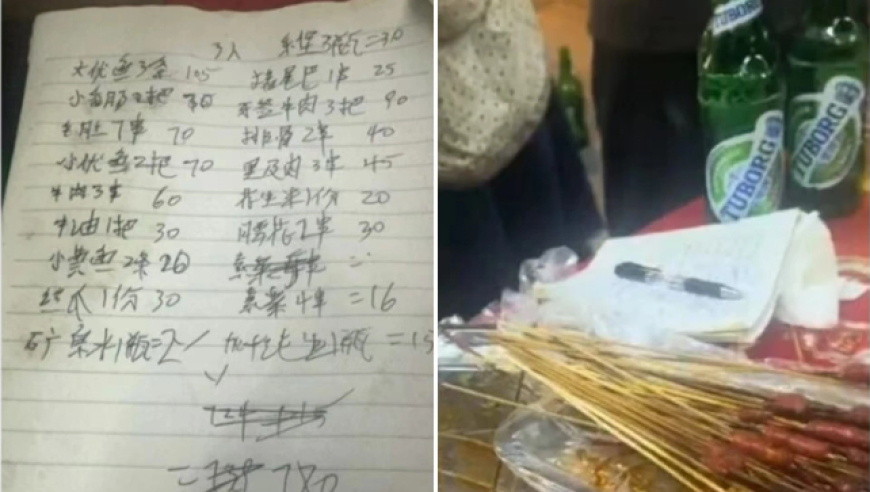 3人 乐堡3瓶=30
大优鱼3条 105 猪尾巴1串 25
小郡肝2把 牙签牛肉3把 90
毛肚7串 70 排骨2串 40
小优鱼2把 70 里及肉3串 45
牛肉3串 60 花生米1份 20
牛油1把 30 腰花2串 30
小黄鱼2条 20
丝瓜1份 30 素菜4串 =16
矿泉水1瓶=2 1瓶 =15
= 780
TUBORG
TUBORG
TUBORG